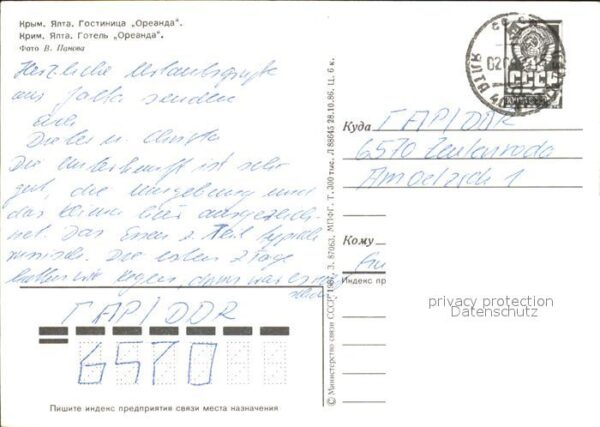 Крым. Ялта. Гостиница „Ореанда“.
Крим. Ялта. Готель „Ореанда“.
Фото В. Панова
Herzliche Urlaubsgrüße
aus Jalta senden
Dieter u. Christa
Die Unterkunft ist sehr
gut, die Umgebung und
das Klima hier ausgezeich-
net. Das Essen z. Teil typisch
russisch. Die ersten 2 Tage
hatten wir Regen, dann war es
ГДР / DDR
6570
Пишите индекс предприятия связи места назначения
© Министерство связи СССР. З. 87063. МПФГ. Т. 300 тыс. Л 88645 28.10.86. Ц. 6 к.
СССР
Куда ГДР / DDR
6570 Zeulenroda
Кому
Индекс пр
privacy protection
Datenschutz